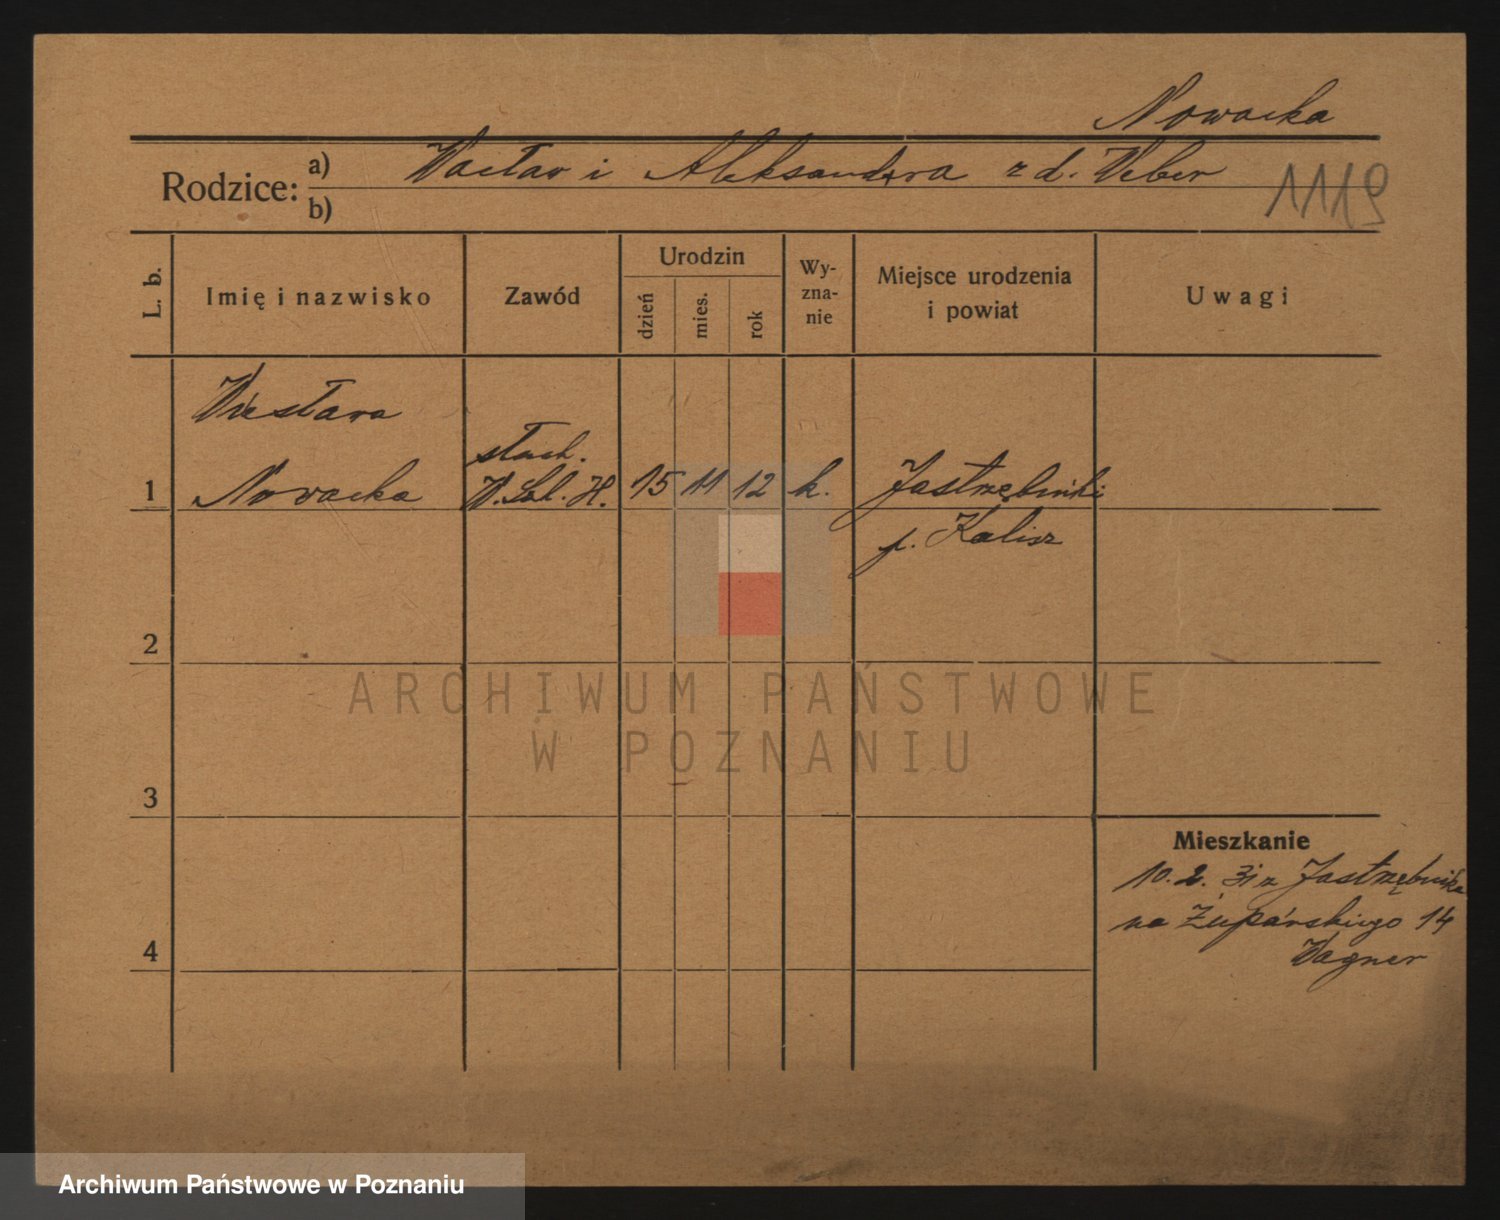 Nowacka
Rodzice: a) Wacław i Aleksandra z d. Weber
b)
1119
L. b.
Imię i nazwisko
Zawód
Urodzin
dzień
mies.
rok
Wy-
zna-
nie
Miejsce urodzenia
i powiat
Uwagi
Wiesława
słuch.
1 Nowacka W. Szk. H. 15 11 12 k. Jastrzębniki
p. Kalisz
2
3
4
Mieszkanie
10. 2. 31 z Jastrzębnika
na Żupańskiego 14
Wagner
ARCHIWUM PAŃSTWOWE
W POZNANIU
Archiwum Państwowe w Poznaniu